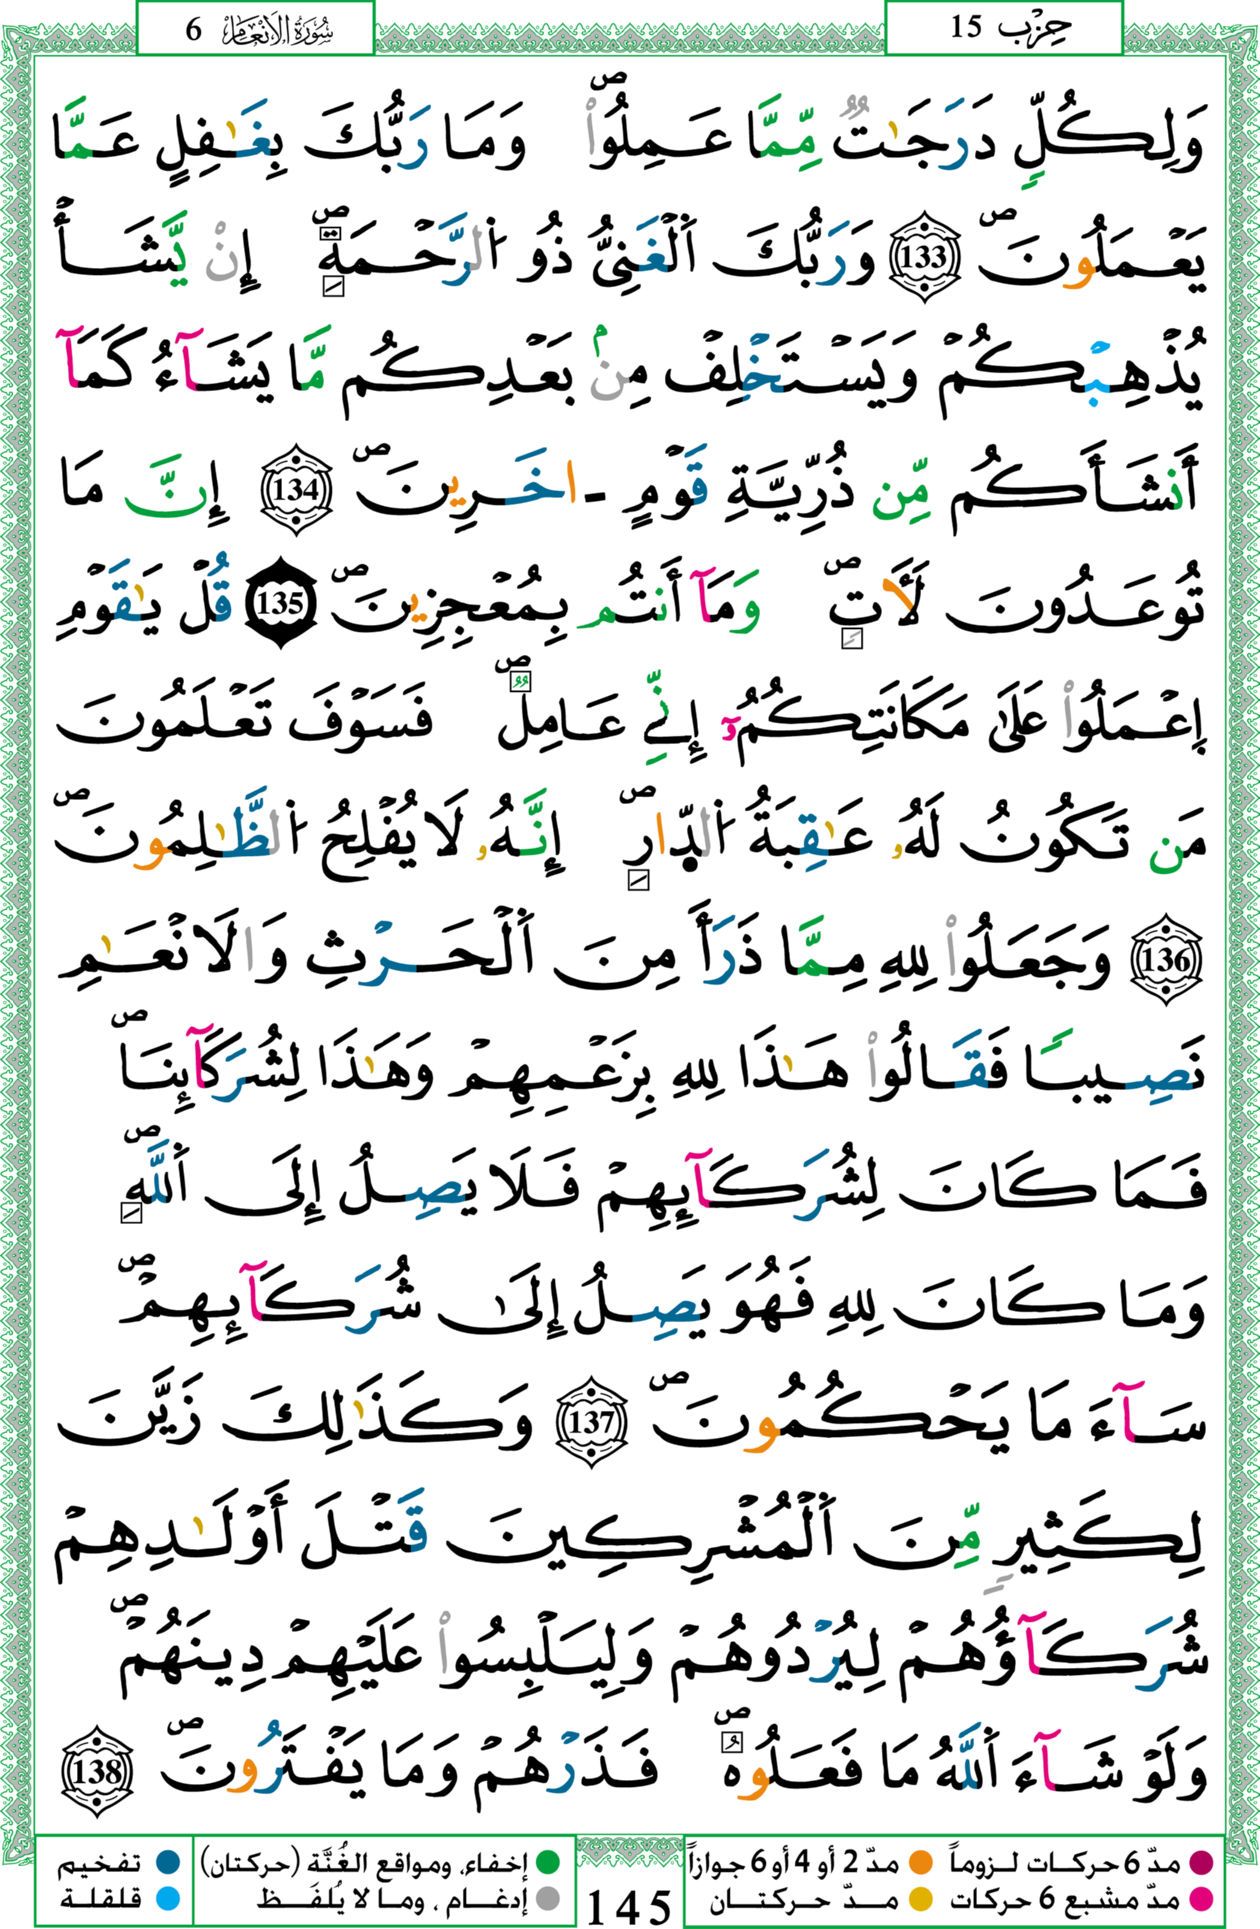 حِزْب 15
سُورَةُ الأَنْعَامِ 6
وَلِكُلّٖ دَرَجَٰتٞ مِّمَّا عَمِلُواْۖ وَمَا رَبُّكَ بِغَٰفِلٍ عَمَّا
يَعْمَلُونَۖ 133 وَرَبُّكَ اَ۬لْغَنِيُّ ذُو اُ۬لرَّحْمَةِۖ إِنْ يَّشَأْ
يُذْهِبْكُمْ وَيَسْتَخْلِفْ مِنۢ بَعْدِكُم مَّا يَشَآءُ كَمَآ
أَنشَأَكُم مِّن ذُرِّيَّةِ قَوْمٍ ـ اخَرِينَۖ 134 إِنَّ مَا
تُوعَدُونَ لَأٓتٖۖ وَمَآ أَنتُم بِمُعْجِزِينَۖ 135 قُلْ يَٰقَوْمِ
اِ۪عْمَلُواْ عَلَىٰ مَكَانَتِكُمُۥٓ إِنِّے عَامِلٞۖ فَسَوْفَ تَعْلَمُونَ
مَن تَكُونُ لَهُۥ عَٰقِبَةُ اُ۬لدّ۪ارِۖ إِنَّهُۥ لَا يُفْلِحُ اُ۬لظَّٰلِمُونَۖ
136 وَجَعَلُواْ لِلهِ مِمَّا ذَرَأَ مِنَ اَ۬لْحَرْثِ وَالَانْعَٰمِ
نَصِيباٗ فَقَالُواْ هَٰذَا لِلهِ بِزَعْمِهِمْ وَهَٰذَا لِشُرَكَآئِنَاۖ
فَمَا كَانَ لِشُرَكَآئِهِمْ فَلَا يَصِلُ إِلَى اَ۬للَّهِۖ
وَمَا كَانَ لِلهِ فَهُوَ يَصِلُ إِلَىٰ شُرَكَآئِهِمْۖ
سَآءَ مَا يَحْكُمُونَۖ 137 وَكَذَٰلِكَ زَيَّنَ
لِكَثِيرٖ مِّنَ اَ۬لْمُشْرِكِينَ قَتْلَ أَوْلَٰدِهِمْ
شُرَكَآؤُهُمْ لِيُرْدُوهُمْ وَلِيَلْبِسُواْ عَلَيْهِمْ دِينَهُمْۖ
وَلَوْ شَآءَ اَ۬للَّهُ مَا فَعَلُوهُۖ فَذَرْهُمْ وَمَا يَفْتَرُونَۖ 138
مدّ 6 حركات لـزوماً مدّ 2 أو 4 أو 6 جوازاً
مدّ مشبع 6 حركات مـدّ حركتـان
145
إخفاء، ومواقع الغُنَّة (حركتان) تفخيم
إدغـام ، ومـا لا يُلفَـظ قلقلـة